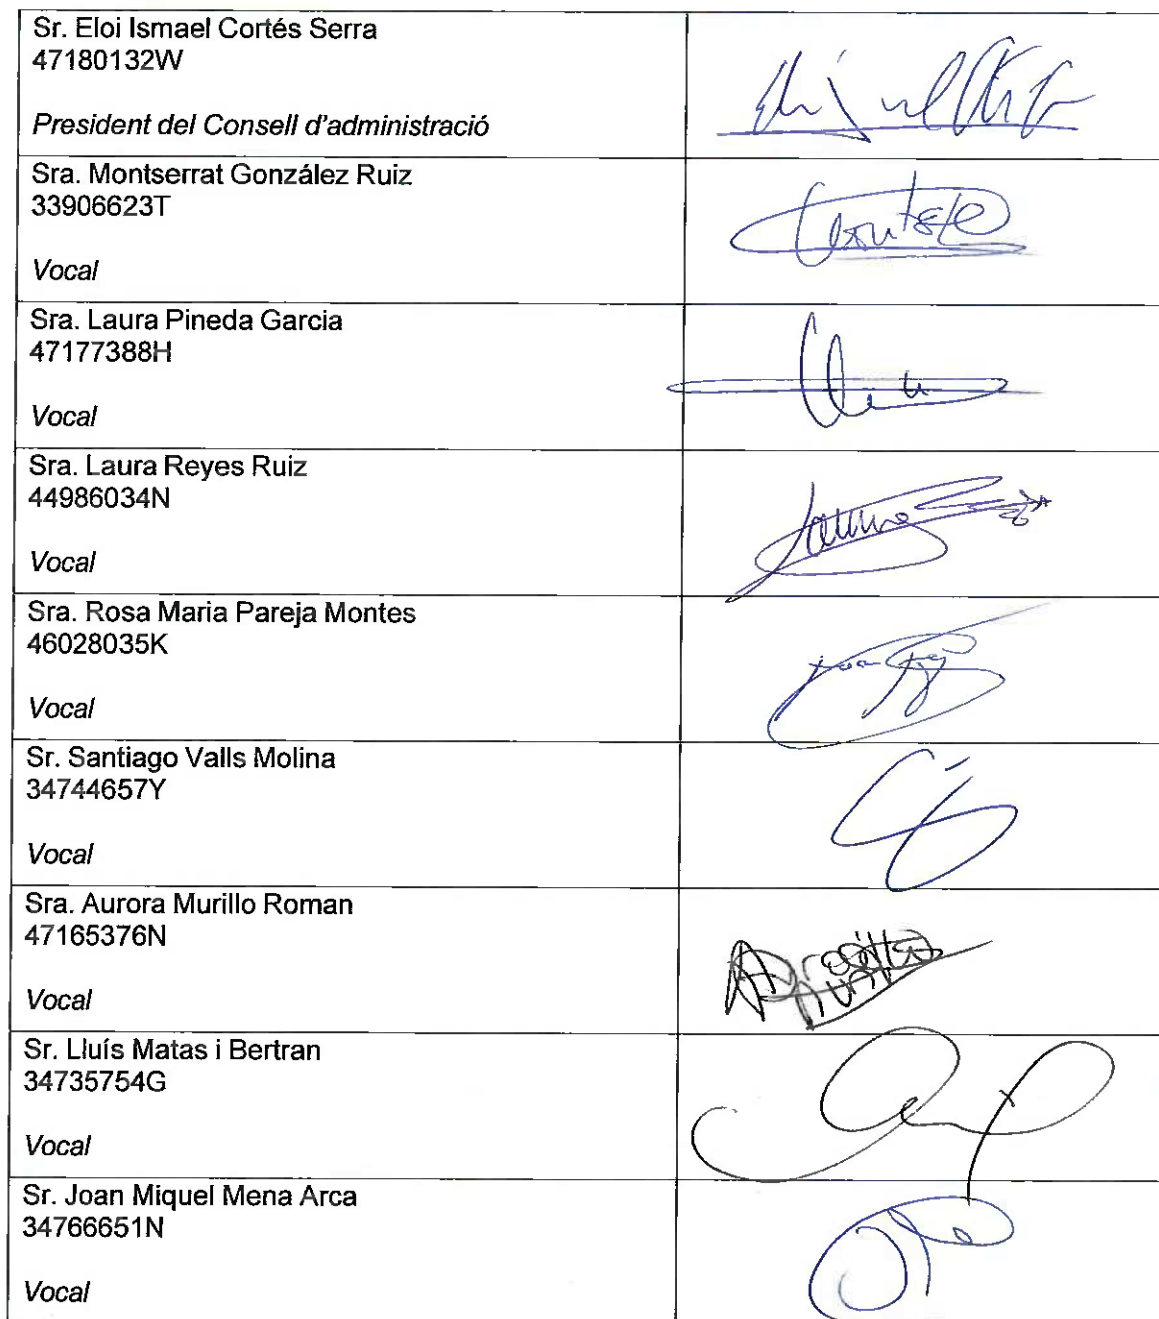 Sr. Eloi Ismael Cortés Serra
47180132W
President del Consell d'administració
Sra. Montserrat González Ruiz
33906623T
Vocal
Sra. Laura Pineda Garcia
47177388H
Vocal
Sra. Laura Reyes Ruiz
44986034N
Vocal
Sra. Rosa Maria Pareja Montes
46028035K
Vocal
Sr. Santiago Valls Molina
34744657Y
Vocal
Sra. Aurora Murillo Roman
47165376N
Vocal
Sr. Lluís Matas i Bertran
34735754G
Vocal
Sr. Joan Miquel Mena Arca
34766651N
Vocal